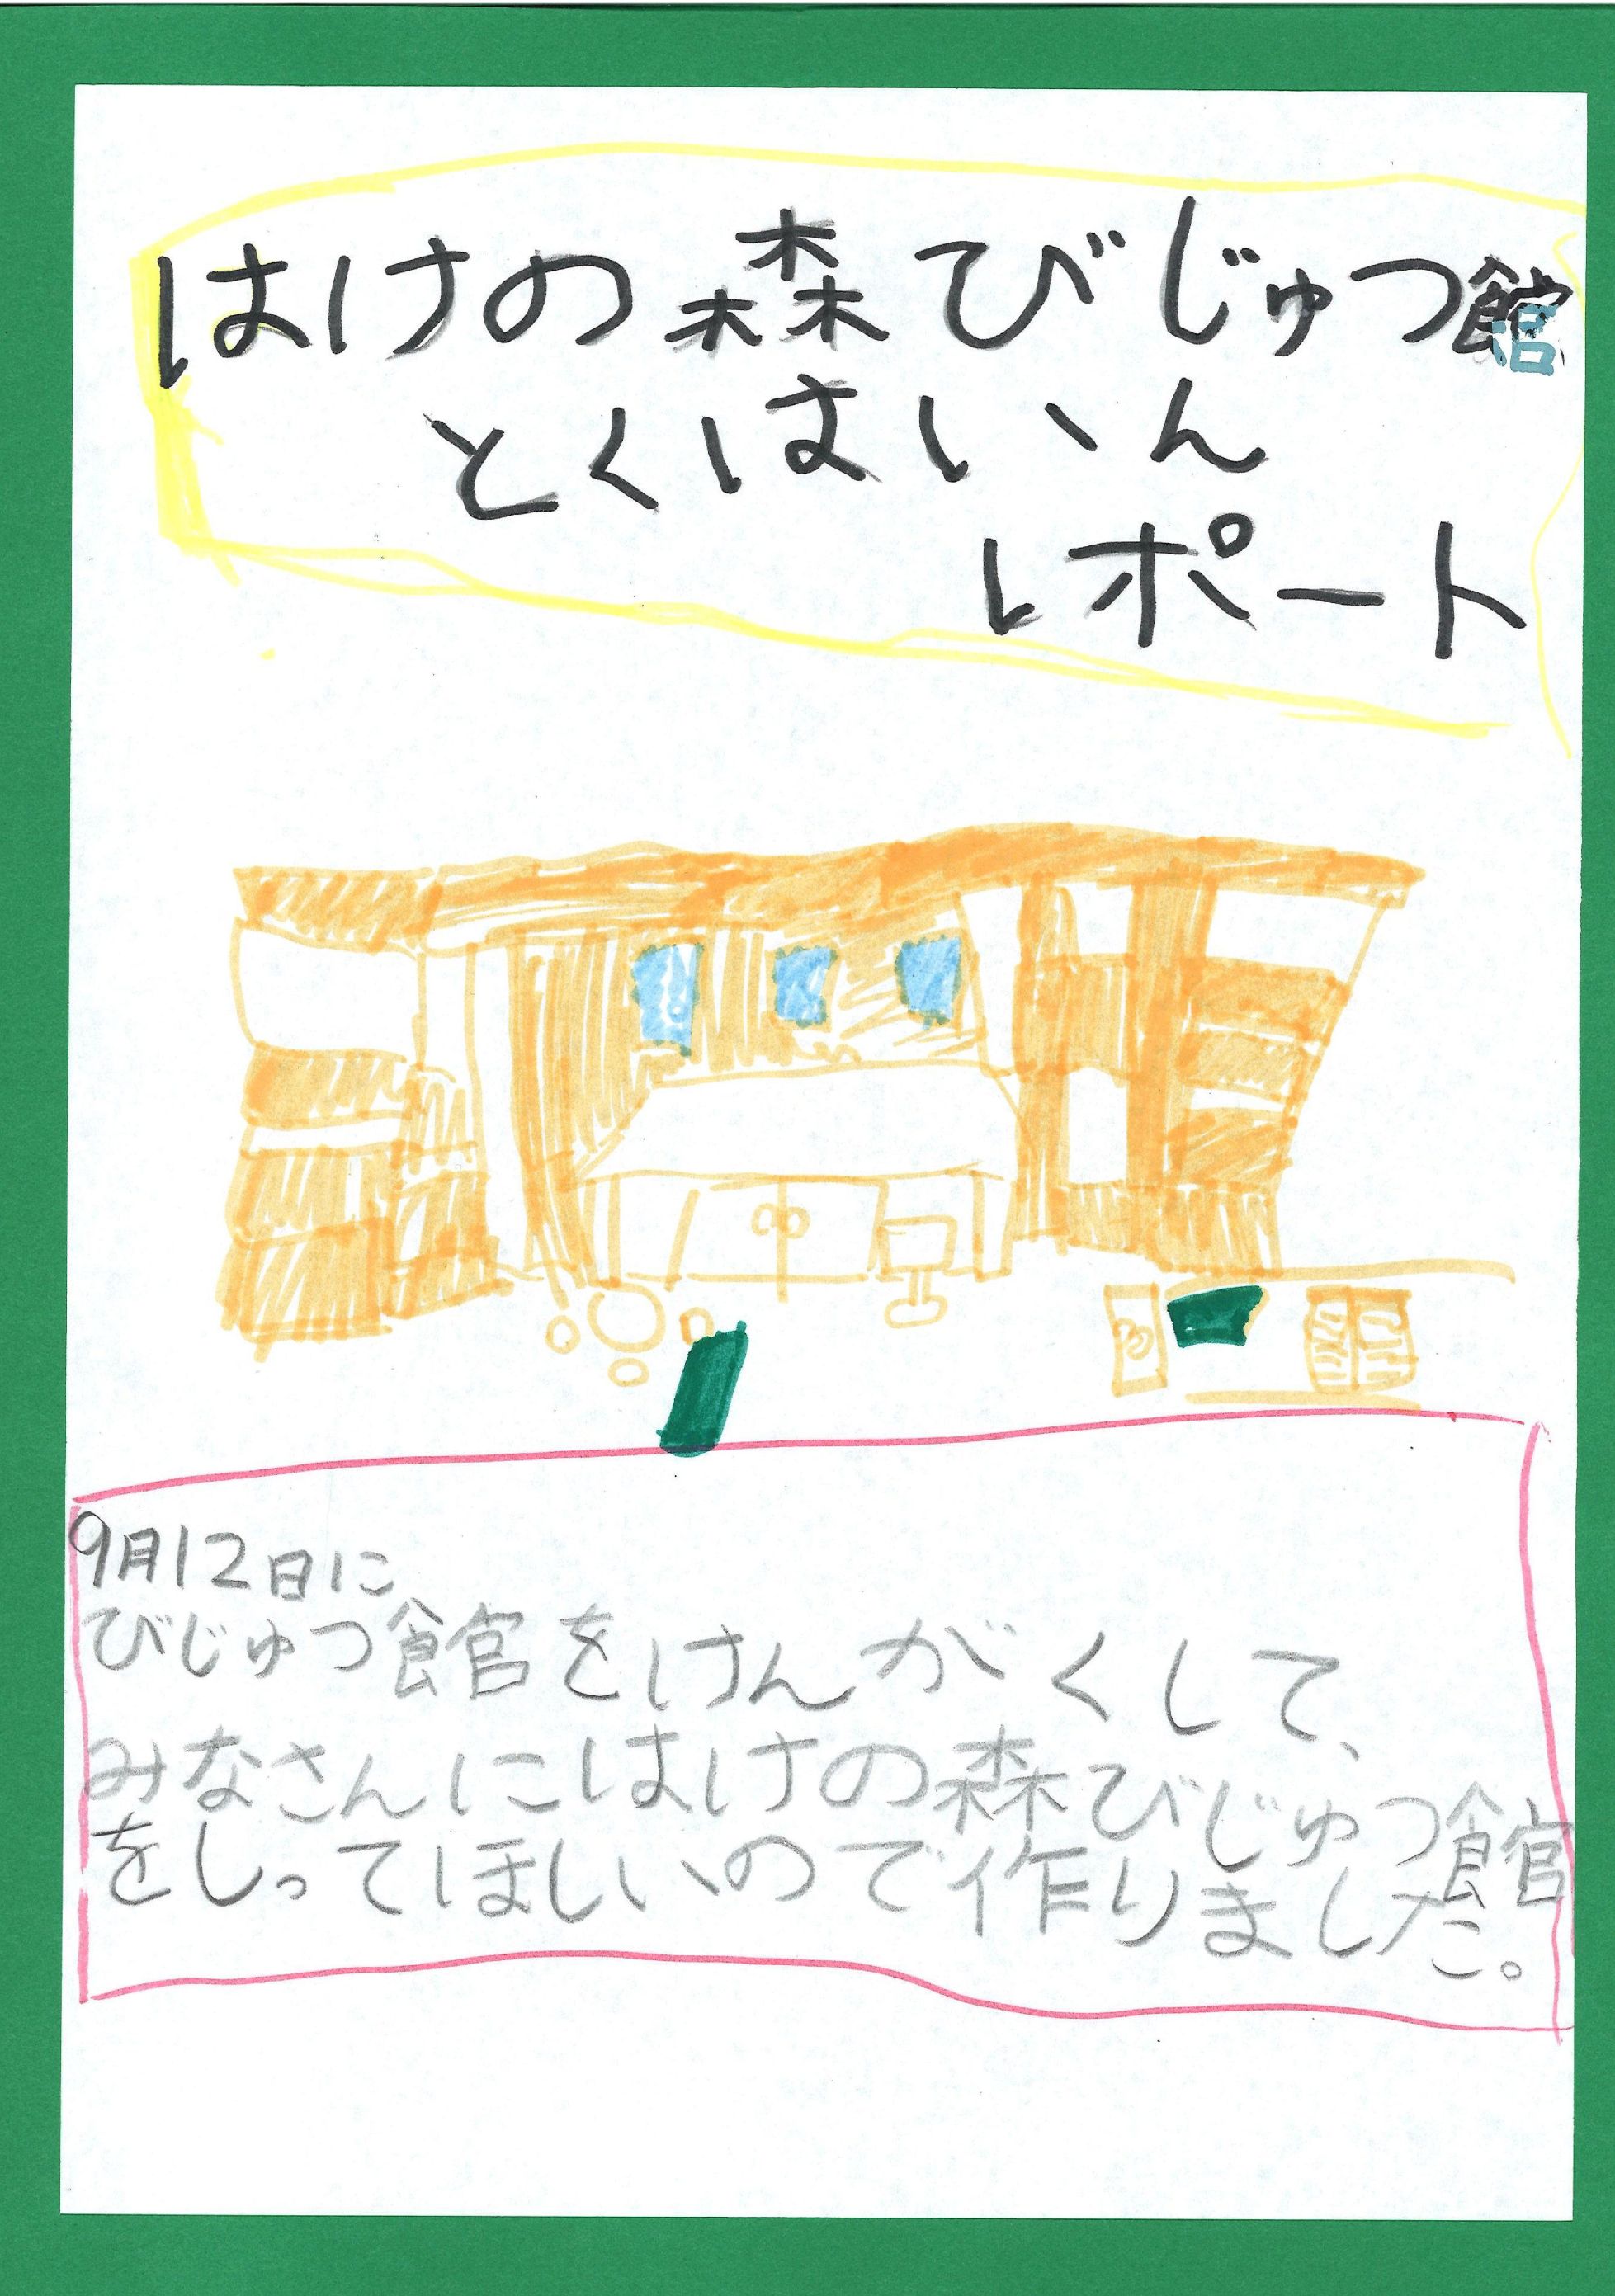 はけの森びじゅつ館
とくはいん
レポート
9月12日に
びじゅつ館をけんがくして、
みなさんにはけの森びじゅつ館
をしってほしいので作りました。